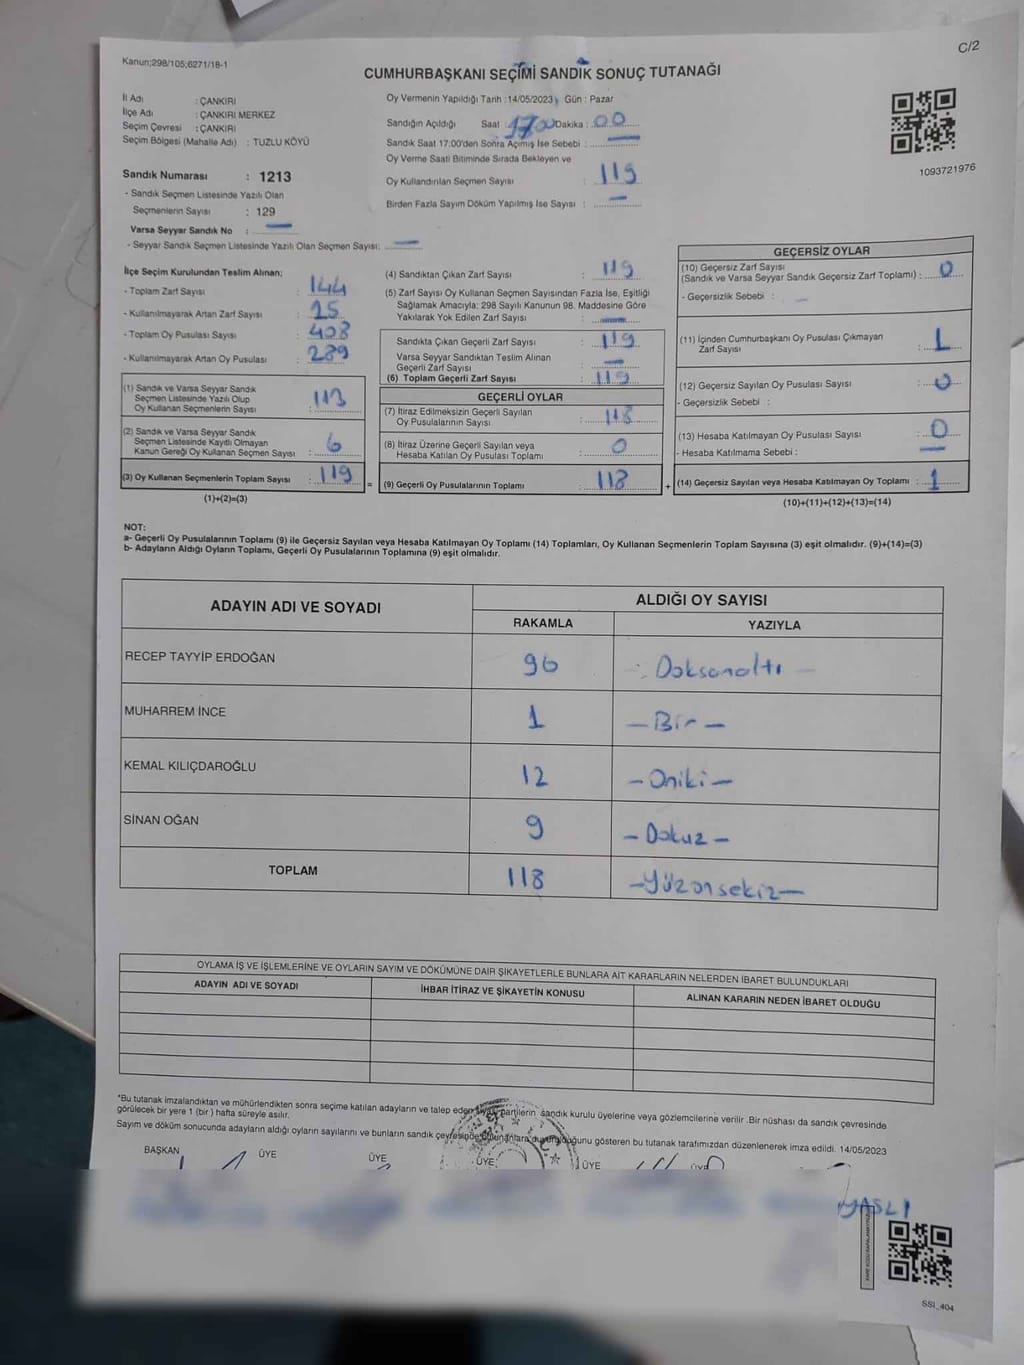 C/2
Kanun;298/105;6271/18-1
CUMHURBAŞKANI SEÇİMİ SANDIK SONUÇ TUTANAĞI
İl Adı : ÇANKIRI
İlçe Adı : ÇANKIRI MERKEZ
Seçim Çevresi : ÇANKIRI
Seçim Bölgesi (Mahalle Adı) : TUZLU KÖYÜ
Sandık Numarası : 1213
- Sandık Seçmen Listesinde Yazılı Olan
Seçmenlerin Sayısı : 129
Varsa Seyyar Sandık No : —
- Seyyar Sandık Seçmen Listesinde Yazılı Olan Seçmen Sayısı: —
Oy Vermenin Yapıldığı Tarih :14/05/2023 Gün : Pazar
Sandığın Açıldığı Saat : 17 00 Dakika : 00
Sandık Saat 17:00'den Sonra Açımış İse Sebebi : —
Oy Verme Saati Bitiminde Sırada Bekleyen ve
Oy Kullandırılan Seçmen Sayısı : 119
Birden Fazla Sayım Döküm Yapılmış İse Sayısı : —
1093721976
İlçe Seçim Kurulundan Teslim Alınan;
- Toplam Zarf Sayısı : 144
- Kullanılmayarak Artan Zarf Sayısı : 25
- Toplam Oy Pusulası Sayısı : 408
- Kullanılmayarak Artan Oy Pusulası : 289
(1) Sandık ve Varsa Seyyar Sandık
Seçmen Listesinde Yazılı Olup
Oy Kullanan Seçmenlerin Sayısı : 113
(2) Sandık ve Varsa Seyyar Sandık
Seçmen Listesinde Kayıtlı Olmayan
Kanun Gereği Oy Kullanan Seçmen Sayısı : 6
(3) Oy Kullanan Seçmenlerin Toplam Sayısı : 119
(1)+(2)=(3)
(4) Sandıktan Çıkan Zarf Sayısı : 119
(5) Zarf Sayısı Oy Kullanan Seçmen Sayısından Fazla İse, Eşitliği
Sağlamak Amacıyla; 298 Sayılı Kanunun 98. Maddesine Göre
Yakılarak Yok Edilen Zarf Sayısı : —
Sandıkta Çıkan Geçerli Zarf Sayısı : 119
Varsa Seyyar Sandıktan Teslim Alınan
Geçerli Zarf Sayısı : —
(6) Toplam Geçerli Zarf Sayısı : 119
GEÇERLİ OYLAR
(7) İtiraz Edilmeksizin Geçerli Sayılan
Oy Pusulalarının Sayısı : 118
(8) İtiraz Üzerine Geçerli Sayılan veya
Hesaba Katılan Oy Pusulası Toplamı : 0
(9) Geçerli Oy Pusulalarının Toplamı : 118
GEÇERSİZ OYLAR
(10) Geçersiz Zarf Sayısı
(Sandık ve Varsa Seyyar Sandık Geçersiz Zarf Toplamı) : 0
- Geçersizlik Sebebi : —
(11) İçinden Cumhurbaşkanı Oy Pusulası Çıkmayan
Zarf Sayısı : 1
(12) Geçersiz Sayılan Oy Pusulası Sayısı : 0
- Geçersizlik Sebebi :
(13) Hesaba Katılmayan Oy Pusulası Sayısı : 0
- Hesaba Katılmama Sebebi : —
(14) Geçersiz Sayılan veya Hesaba Katılmayan Oy Toplamı : 1
(10)+(11)+(12)+(13)=(14)
NOT:
a- Geçerli Oy Pusulalarının Toplamı (9) ile Geçersiz Sayılan veya Hesaba Katılmayan Oy Toplamı (14) Toplamları, Oy Kullanan Seçmenlerin Toplam Sayısına (3) eşit olmalıdır. (9)+(14)=(3)
b- Adayların Aldığı Oyların Toplamı, Geçerli Oy Pusulalarının Toplamına (9) eşit olmalıdır.
ADAYIN ADI VE SOYADI ALDIĞI OY SAYISI
RAKAMLA YAZIYLA
RECEP TAYYİP ERDOĞAN 96 Doksanaltı —
MUHARREM İNCE 1 — Bir —
KEMAL KILIÇDAROĞLU 12 — Oniki —
SİNAN OĞAN 9 — Dokuz —
TOPLAM 118 — Yüzonsekiz —
OYLAMA İŞ VE İŞLEMLERİNE VE OYLARIN SAYIM VE DÖKÜMÜNE DAİR ŞİKAYETLERLE BUNLARA AİT KARARLARIN NELERDEN İBARET BULUNDUKLARI
ADAYIN ADI VE SOYADI İHBAR İTİRAZ VE ŞİKAYETİN KONUSU ALINAN KARARIN NEDEN İBARET OLDUĞU
*Bu tutanak imzalandıktan ve mühürlendikten sonra seçime katılan adayların ve talep eden siyasi partilerin sandık kurulu üyelerine veya gözlemcilerine verilir .Bir nüshası da sandık çevresinde
görülecek bir yere 1 (bir ) hafta süreyle asılır.
Sayım ve döküm sonucunda adayların aldığı oyların sayılarını ve bunların sandık çevresinde olduğunu gösteren bu tutanak tarafımızdan düzenlenerek imza edildi. 14/05/2023
BAŞKAN ÜYE ÜYE ÜYE ÜYE ÜYE
YASLI
SSI_404